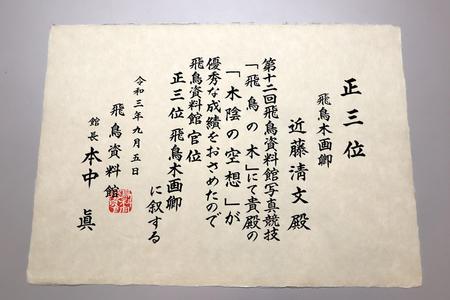 正三位
飛鳥木画卿
近藤清文殿
第十二回飛鳥資料館写真競技
「飛鳥の木」にて貴殿の
「木陰の空想」が
優秀な成績をおさめたので
飛鳥資料館官位
正三位 飛鳥木画卿
に叙する
令和三年九月五日
飛鳥資料館
館長 本中 眞